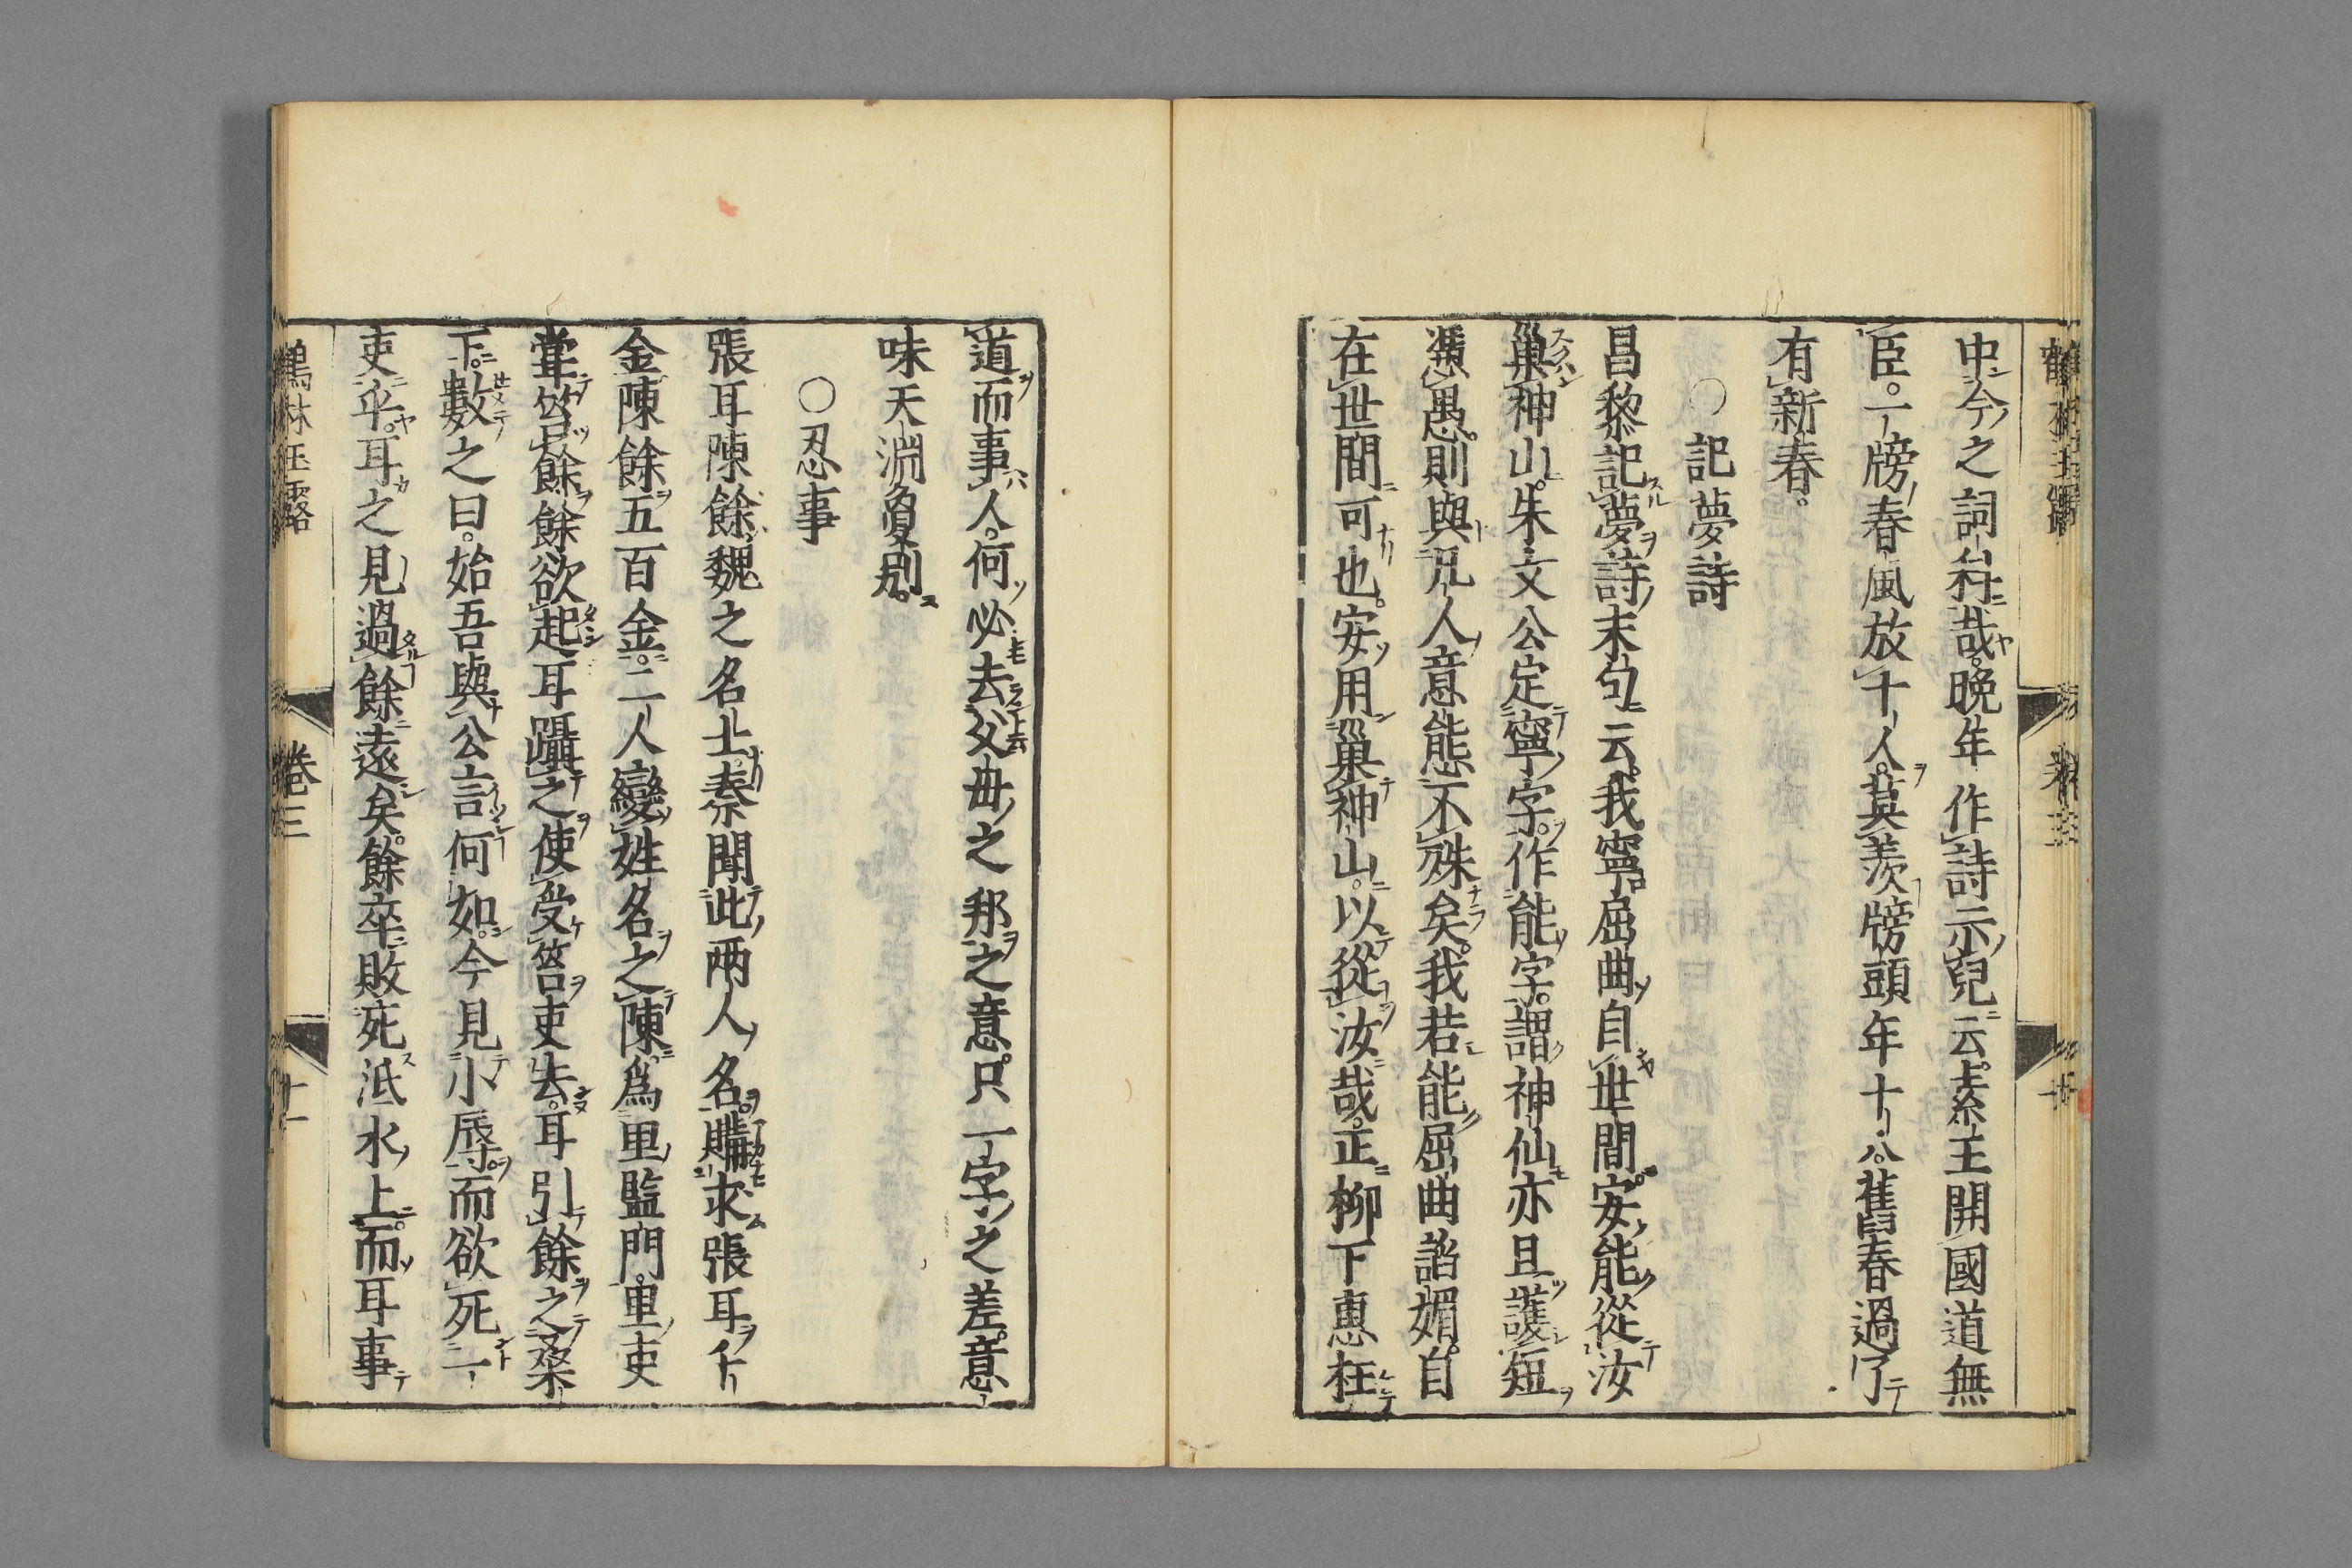 中今之詞科哉晚年作詩示兒云素王開國道無
臣。一牓春風放十人。莫羨牓頭年十八。舊春過了
有新春。
〇記夢詩
昌黎記夢詩末句云。我寧屈曲自世間。安能從汝
巢神山。朱文公定寧字。作能字。謂神仙亦且護短
憑愚。則與凡人意態不殊矣。我若能屈曲諂媚。自
在世間可也。安用巢神山。以從汝哉。正柳下惠枉
道而事人。何必去父母之邦之意。只一字之差。意
味天淵夐別。
〇忍事
張耳陳餘。魏之名士。秦聞此兩人名。購求張耳千
金陳餘五百金。二人變姓名之陳。爲里監門。里吏
嘗笞餘。餘欲起。耳躡之使受笞。吏去。耳引餘之桑
下。數之曰。始吾與公言何如。今見小辱。而欲死一
吏乎。耳之見過餘遠矣。餘卒敗死泜水上。而耳事
鶴林玉露 卷三 十一